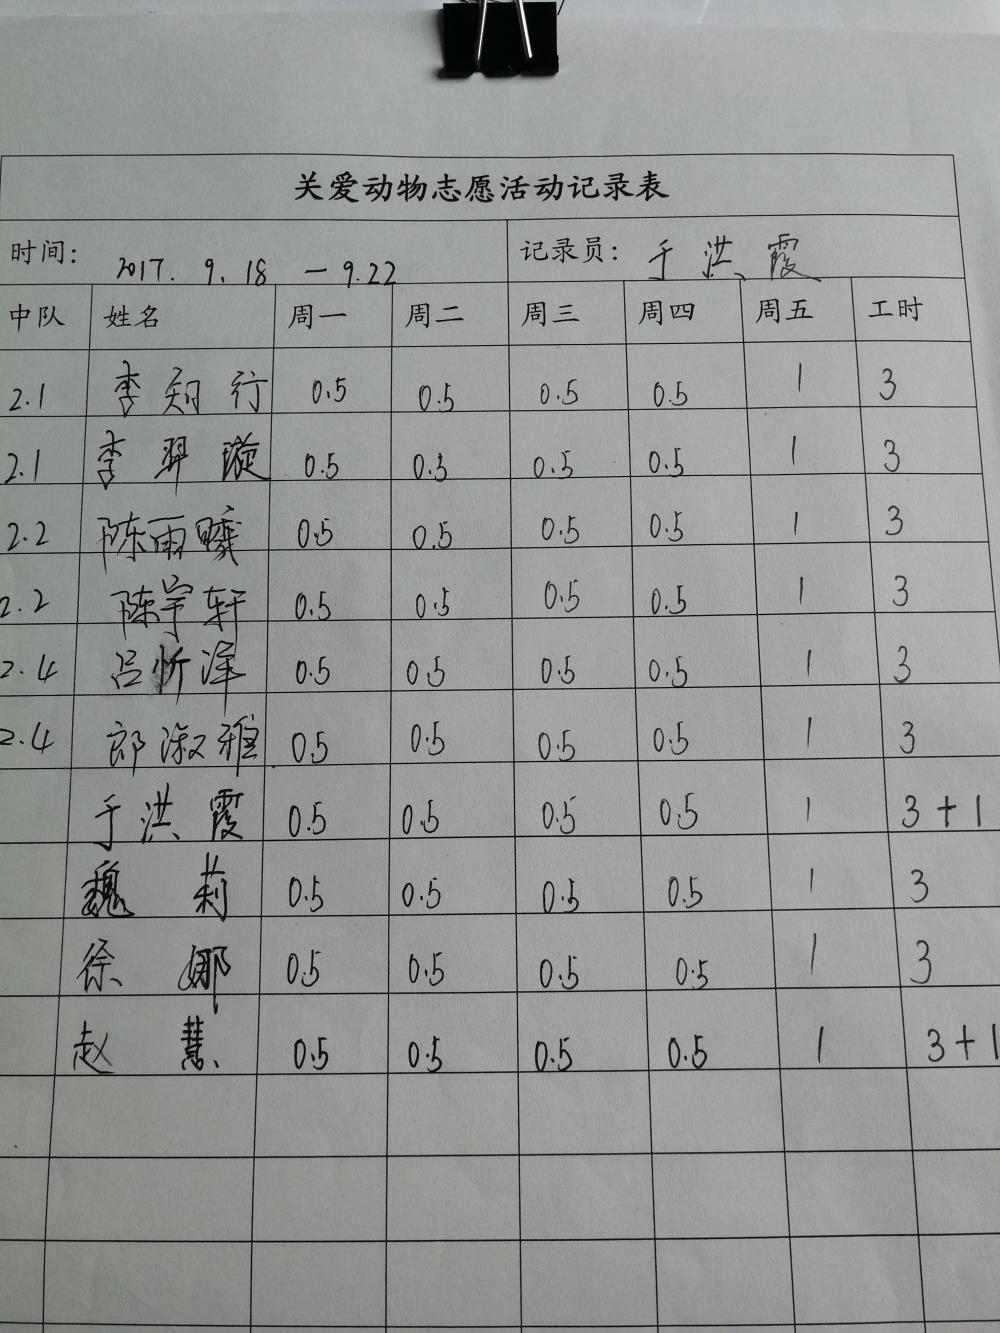 关爱动物志愿活动记录表
时间: 2017.9.18 —9.22 记录员: 于洪霞
中队 姓名 周一 周二 周三 周四 周五 工时
2.1 李知行 0.5 0.5 0.5 0.5 1 3
2.1 李羿璇 0.5 0.5 0.5 0.5 1 3
2.2 陈雨曦 0.5 0.5 0.5 0.5 1 3
2.2 陈宇轩 0.5 0.5 0.5 0.5 1 3
2.4 吕忻泽 0.5 0.5 0.5 0.5 1 3
2.4 郎淑雅 0.5 0.5 0.5 0.5 1 3
于洪霞 0.5 0.5 0.5 0.5 1 3+1
魏莉 0.5 0.5 0.5 0.5 1 3
徐娜 0.5 0.5 0.5 0.5 1 3
赵慧 0.5 0.5 0.5 0.5 1 3+1